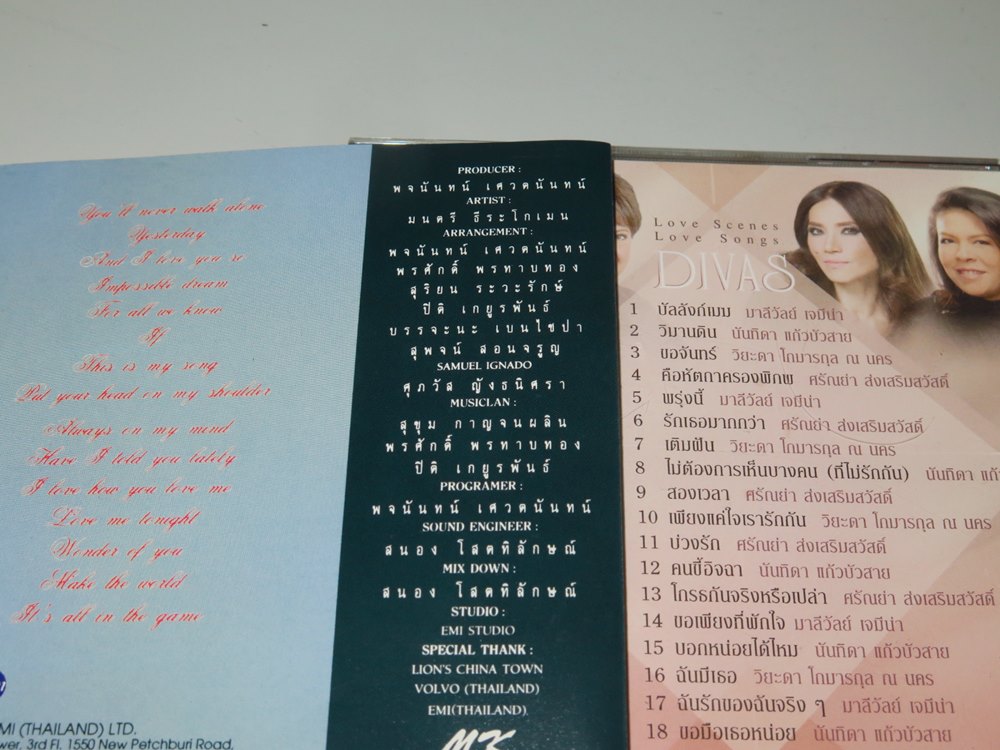 You'll never walk alone
Yesterday
And I love you so
Impossible dream
For all we know
If
This is my song
Put your head on my shoulder
Always on my mind
Have I told you lately
I love how you love me
Love me tonight
Wonder of you
Make the world
It's all in the game
MI (THAILAND) LTD.
wer, 3rd Fl. 1550 New Petchburi Road,
PRODUCER :
พจนันทน์ เศวตนันทน์
ARTIST :
มนตรี ธีระโกเมน
ARRANGEMENT :
พจนันทน์ เศวตนันทน์
พรศักดิ์ พรทาบทอง
สุริยน ระวะรักษ์
ปิติ เกยูรพันธ์
บรรจะนะ เบนไชปา
สุพจน์ สอนจรูญ
SAMUEL IGNADO
ศุภวัส ญังธนิศรา
MUSICLAN :
สุขุม กาญจนผลิน
พรศักดิ์ พรทาบทอง
ปิติ เกยูรพันธ์
PROGRAMER :
พจนันทน์ เศวตนันทน์
SOUND ENGINEER :
สนอง โสตทิลักษณ์
MIX DOWN :
สนอง โสตทิลักษณ์
STUDIO :
EMI STUDIO
SPECIAL THANK :
LION'S CHINA TOWN
VOLVO (THAILAND)
EMI(THAILAND)
MK
Love Scenes
Love Songs
DIVAS
1 บัลลังก์เมฆ มาลีวัลย์ เจมีน่า
2 วิมานดิน นันทิดา แก้วบัวสาย
3 ขอจันทร์ วิยะดา โกมารกุล ณ นคร
4 คือหัตถาครองพิภพ ศรัณย่า ส่งเสริมสวัสดิ์
5 พรุ่งนี้ มาลีวัลย์ เจมีน่า
6 รักเธอมากกว่า ศรัณย่า ส่งเสริมสวัสดิ์
7 เติมฝัน วิยะดา โกมารกุล ณ นคร
8 ไม่ต้องการเห็นบางคน (ที่ไม่รักกัน) นันทิดา แก้ว
9 สองเวลา ศรัณย่า ส่งเสริมสวัสดิ์
10 เพียงแค่ใจเรารักกัน วิยะดา โกมารกุล ณ นคร
11 บ่วงรัก ศรัณย่า ส่งเสริมสวัสดิ์
12 คนขี้อิจฉา นันทิดา แก้วบัวสาย
13 โกรธกันจริงหรือเปล่า ศรัณย่า ส่งเสริมสวัสดิ์
14 ขอเพียงที่พักใจ มาลีวัลย์ เจมีน่า
15 บอกหน่อยได้ไหม นันทิดา แก้วบัวสาย
16 ฉันมีเธอ วิยะดา โกมารกุล ณ นคร
17 ฉันรักของฉันจริง ๆ มาลีวัลย์ เจมีน่า
18 ขอมือเธอหน่อย นันทิดา แก้วบัวสาย